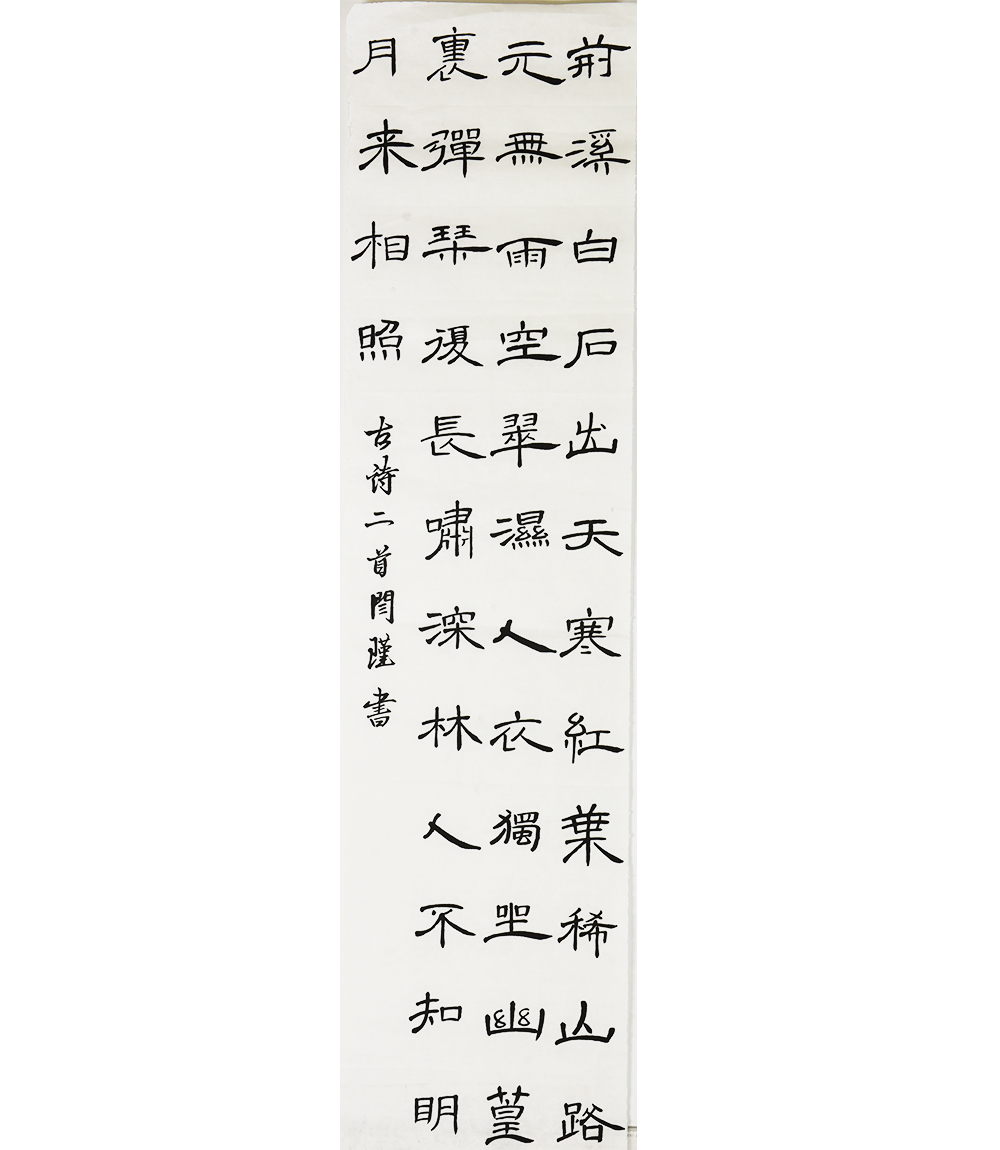 荊溪白石出天寒紅葉稀山路
元無雨空翠濕人衣獨坐幽篁
裏彈琹復長嘯深林人不知明
月来相照
古詩二首閆瑾書